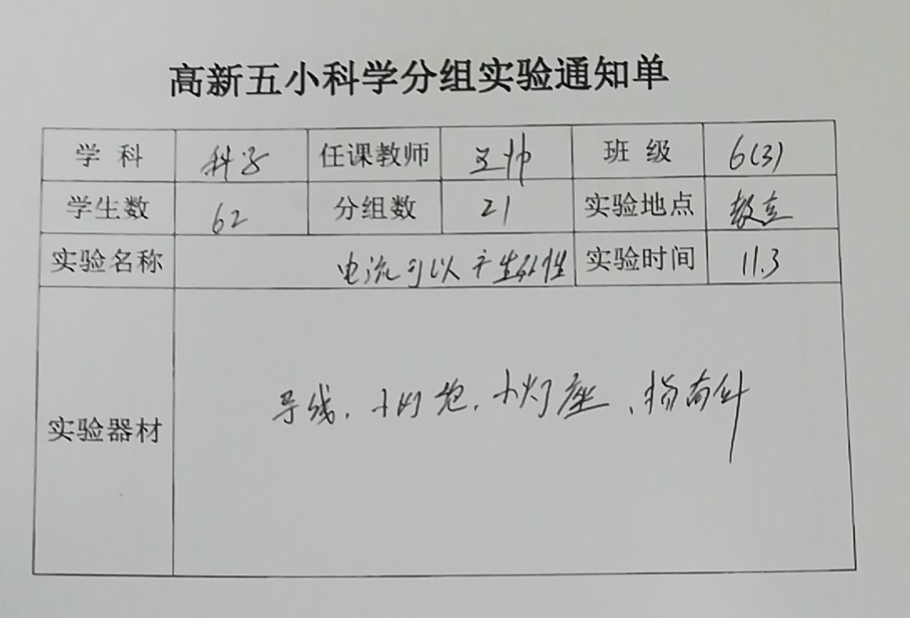 高新五小科学分组实验通知单
学科 科学 任课教师 王帅 班级 6(3)
学生数 62 分组数 21 实验地点 教室
实验名称 电流可以产生磁性 实验时间 11.3
实验器材 导线、小灯泡、小灯座、指南针